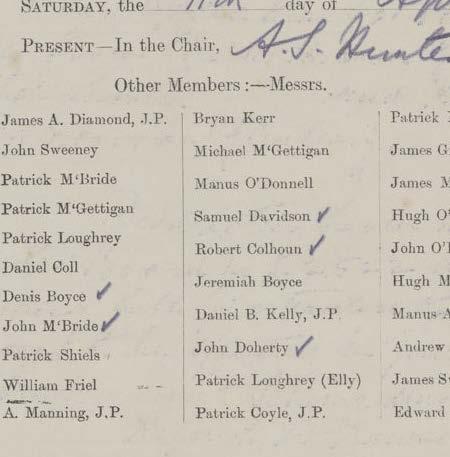 SATURDAY, the 11th day of
PRESENT—In the Chair, A. S. Hunter
Other Members :—Messrs.
James A. Diamond, J.P.
John Sweeney
Patrick M'Bride
Patrick M'Gettigan
Patrick Loughrey
Daniel Coll
Denis Boyce ✓
John M'Bride ✓
Patrick Shiels
William Friel
A. Manning, J.P.
Bryan Kerr
Michael M'Gettigan
Manus O'Donnell
Samuel Davidson ✓
Robert Colhoun ✓
Jeremiah Boyce
Daniel B. Kelly, J.P.
John Doherty ✓
Patrick Loughrey (Elly)
Patrick Coyle, J.P.
Patrick
James
James
Hugh
John
Hugh
Manus
Andrew
James
Edward